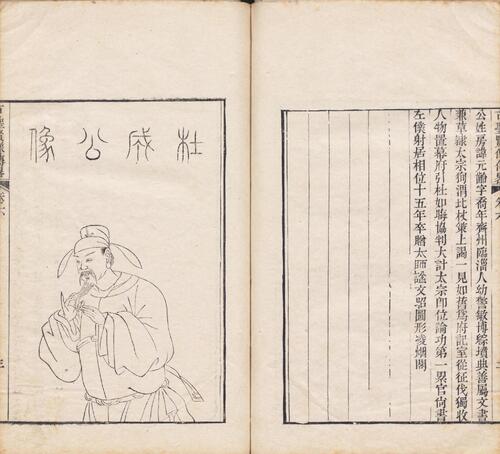 公姓房諱元齡字喬年齊州臨淄人幼警敏博綜墳典善屬文書
兼草隸太宗徇渭北杖策上謁一見如舊爲府記室從征伐獨收
人物置幕府引杜如晦協判大計太宗卽位論功第一累官尙書
左僕射居相位十五年卒贈太師諡文昭圖形凌烟閣
杜成公像
三